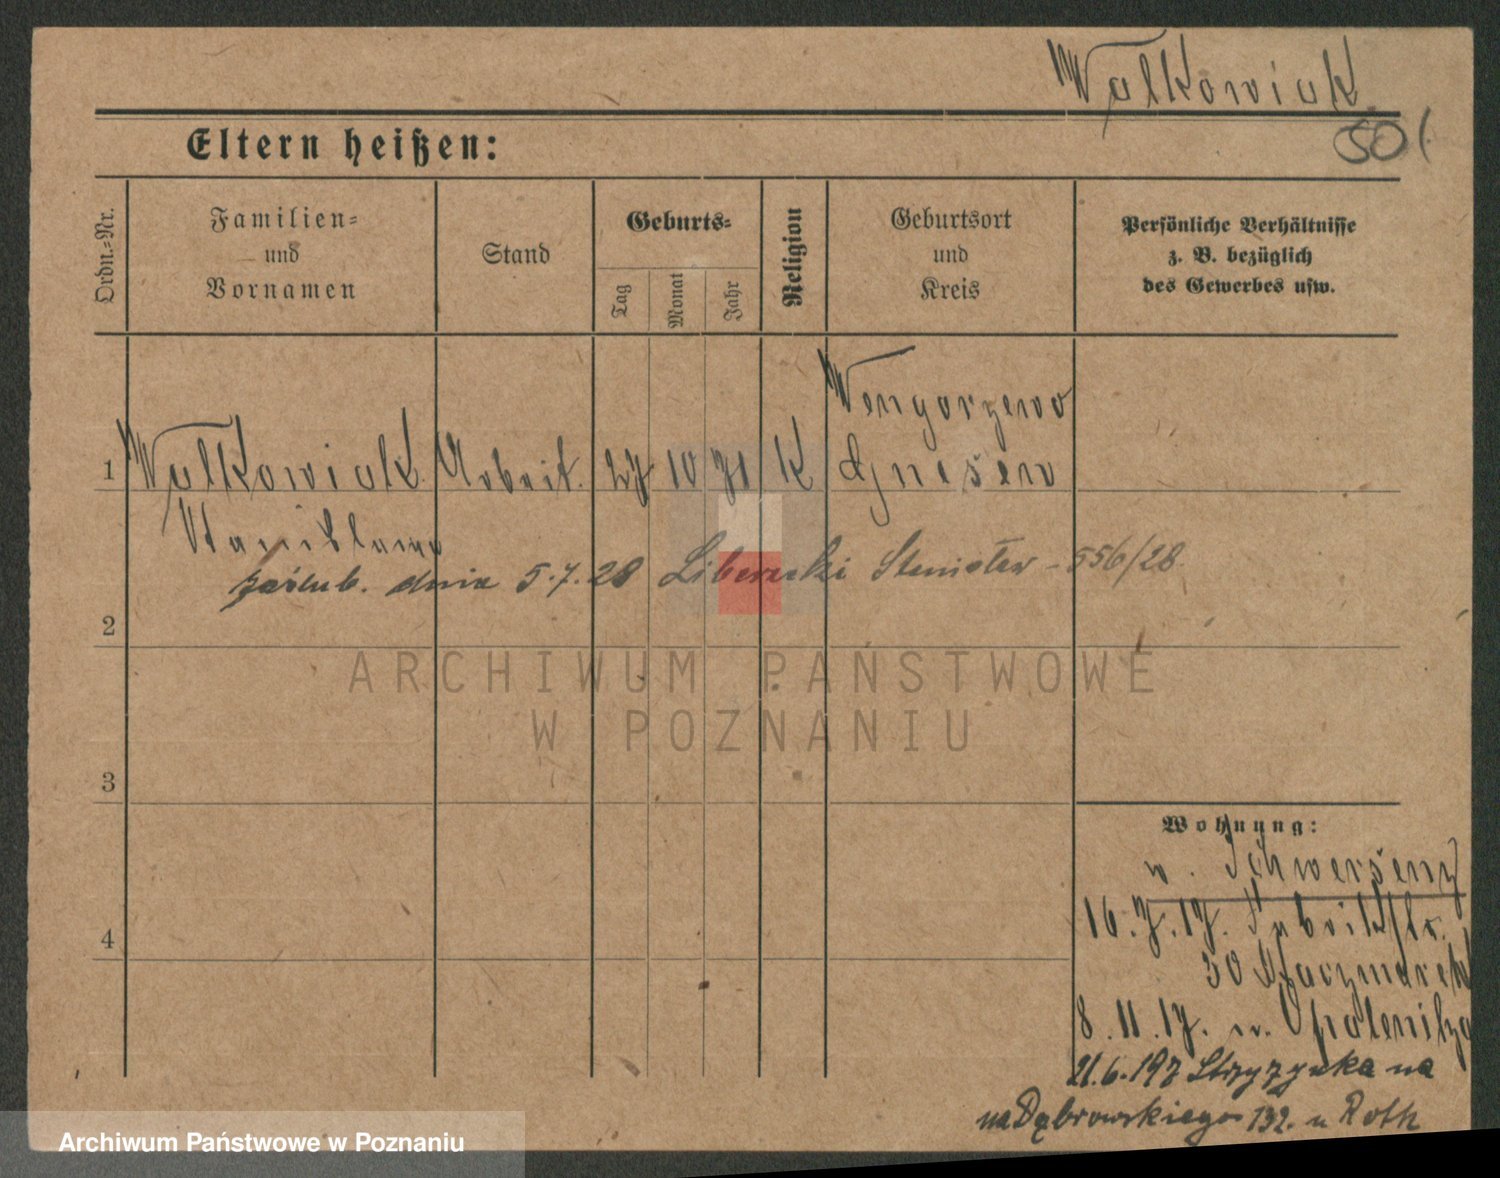 Walkowiak
501
Eltern heißen:
Ordn.-Nr.
Familien-
und
Vornamen
Stand
Geburts-
Tag
Monat
Jahr
Religion
Geburtsort
und
Kreis
Persönliche Verhältnisse
z. B. bezüglich
des Gewerbes usw.
Wengorzewo
1 Walkowiak Arbeit. 27 10 71 K Gnesen
Stanislawa
zaślub. dnia 5.7.28 Liberacki Stanisław - 556/28
2
ARCHIWUM PAŃSTWOWE
W POZNANIU
3
Wohnung:
v. Schwersenz
4
16.7.17. Fabrikstr.
30 Kaczmarek
8.11.17. n. Opalenitza
21.6. Strzyżynka na
na Dąbrowskiego 132. u Roth
Archiwum Państwowe w Poznaniu